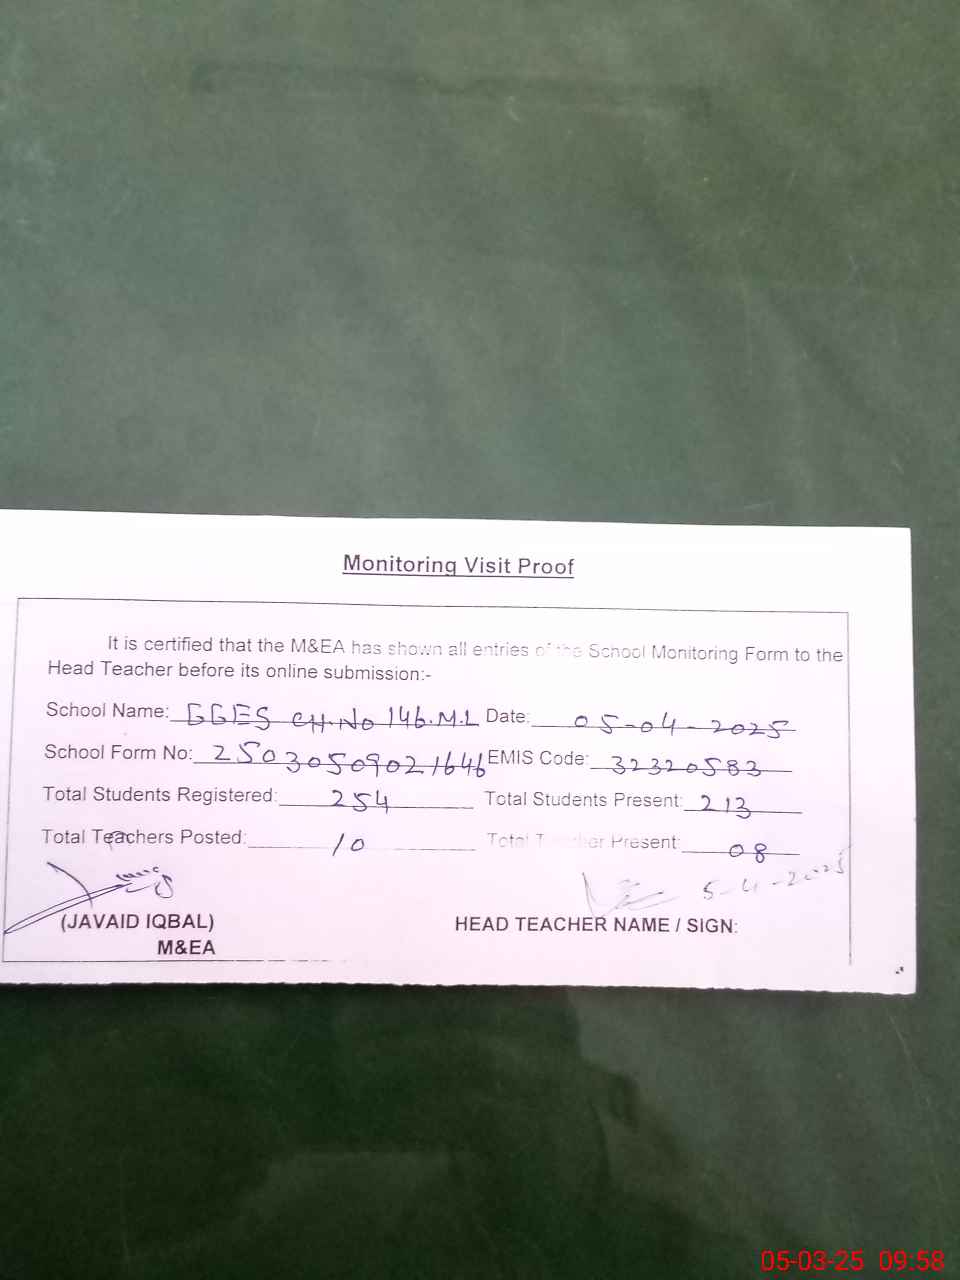 Monitoring Visit Proof
It is certified that the M&EA has shown all entries of the School Monitoring Form to the
Head Teacher before its online submission:-
School Name: GGES CH.No 146.M.L Date: 05-04-2025
School Form No: 25030509021646 EMIS Code: 32320583
Total Students Registered: 254 Total Students Present: 213
Total Teachers Posted: 10 Total Teacher Present: 08
5-4-2025
(JAVAID IQBAL) HEAD TEACHER NAME / SIGN:
M&EA
05-03-25 09:58